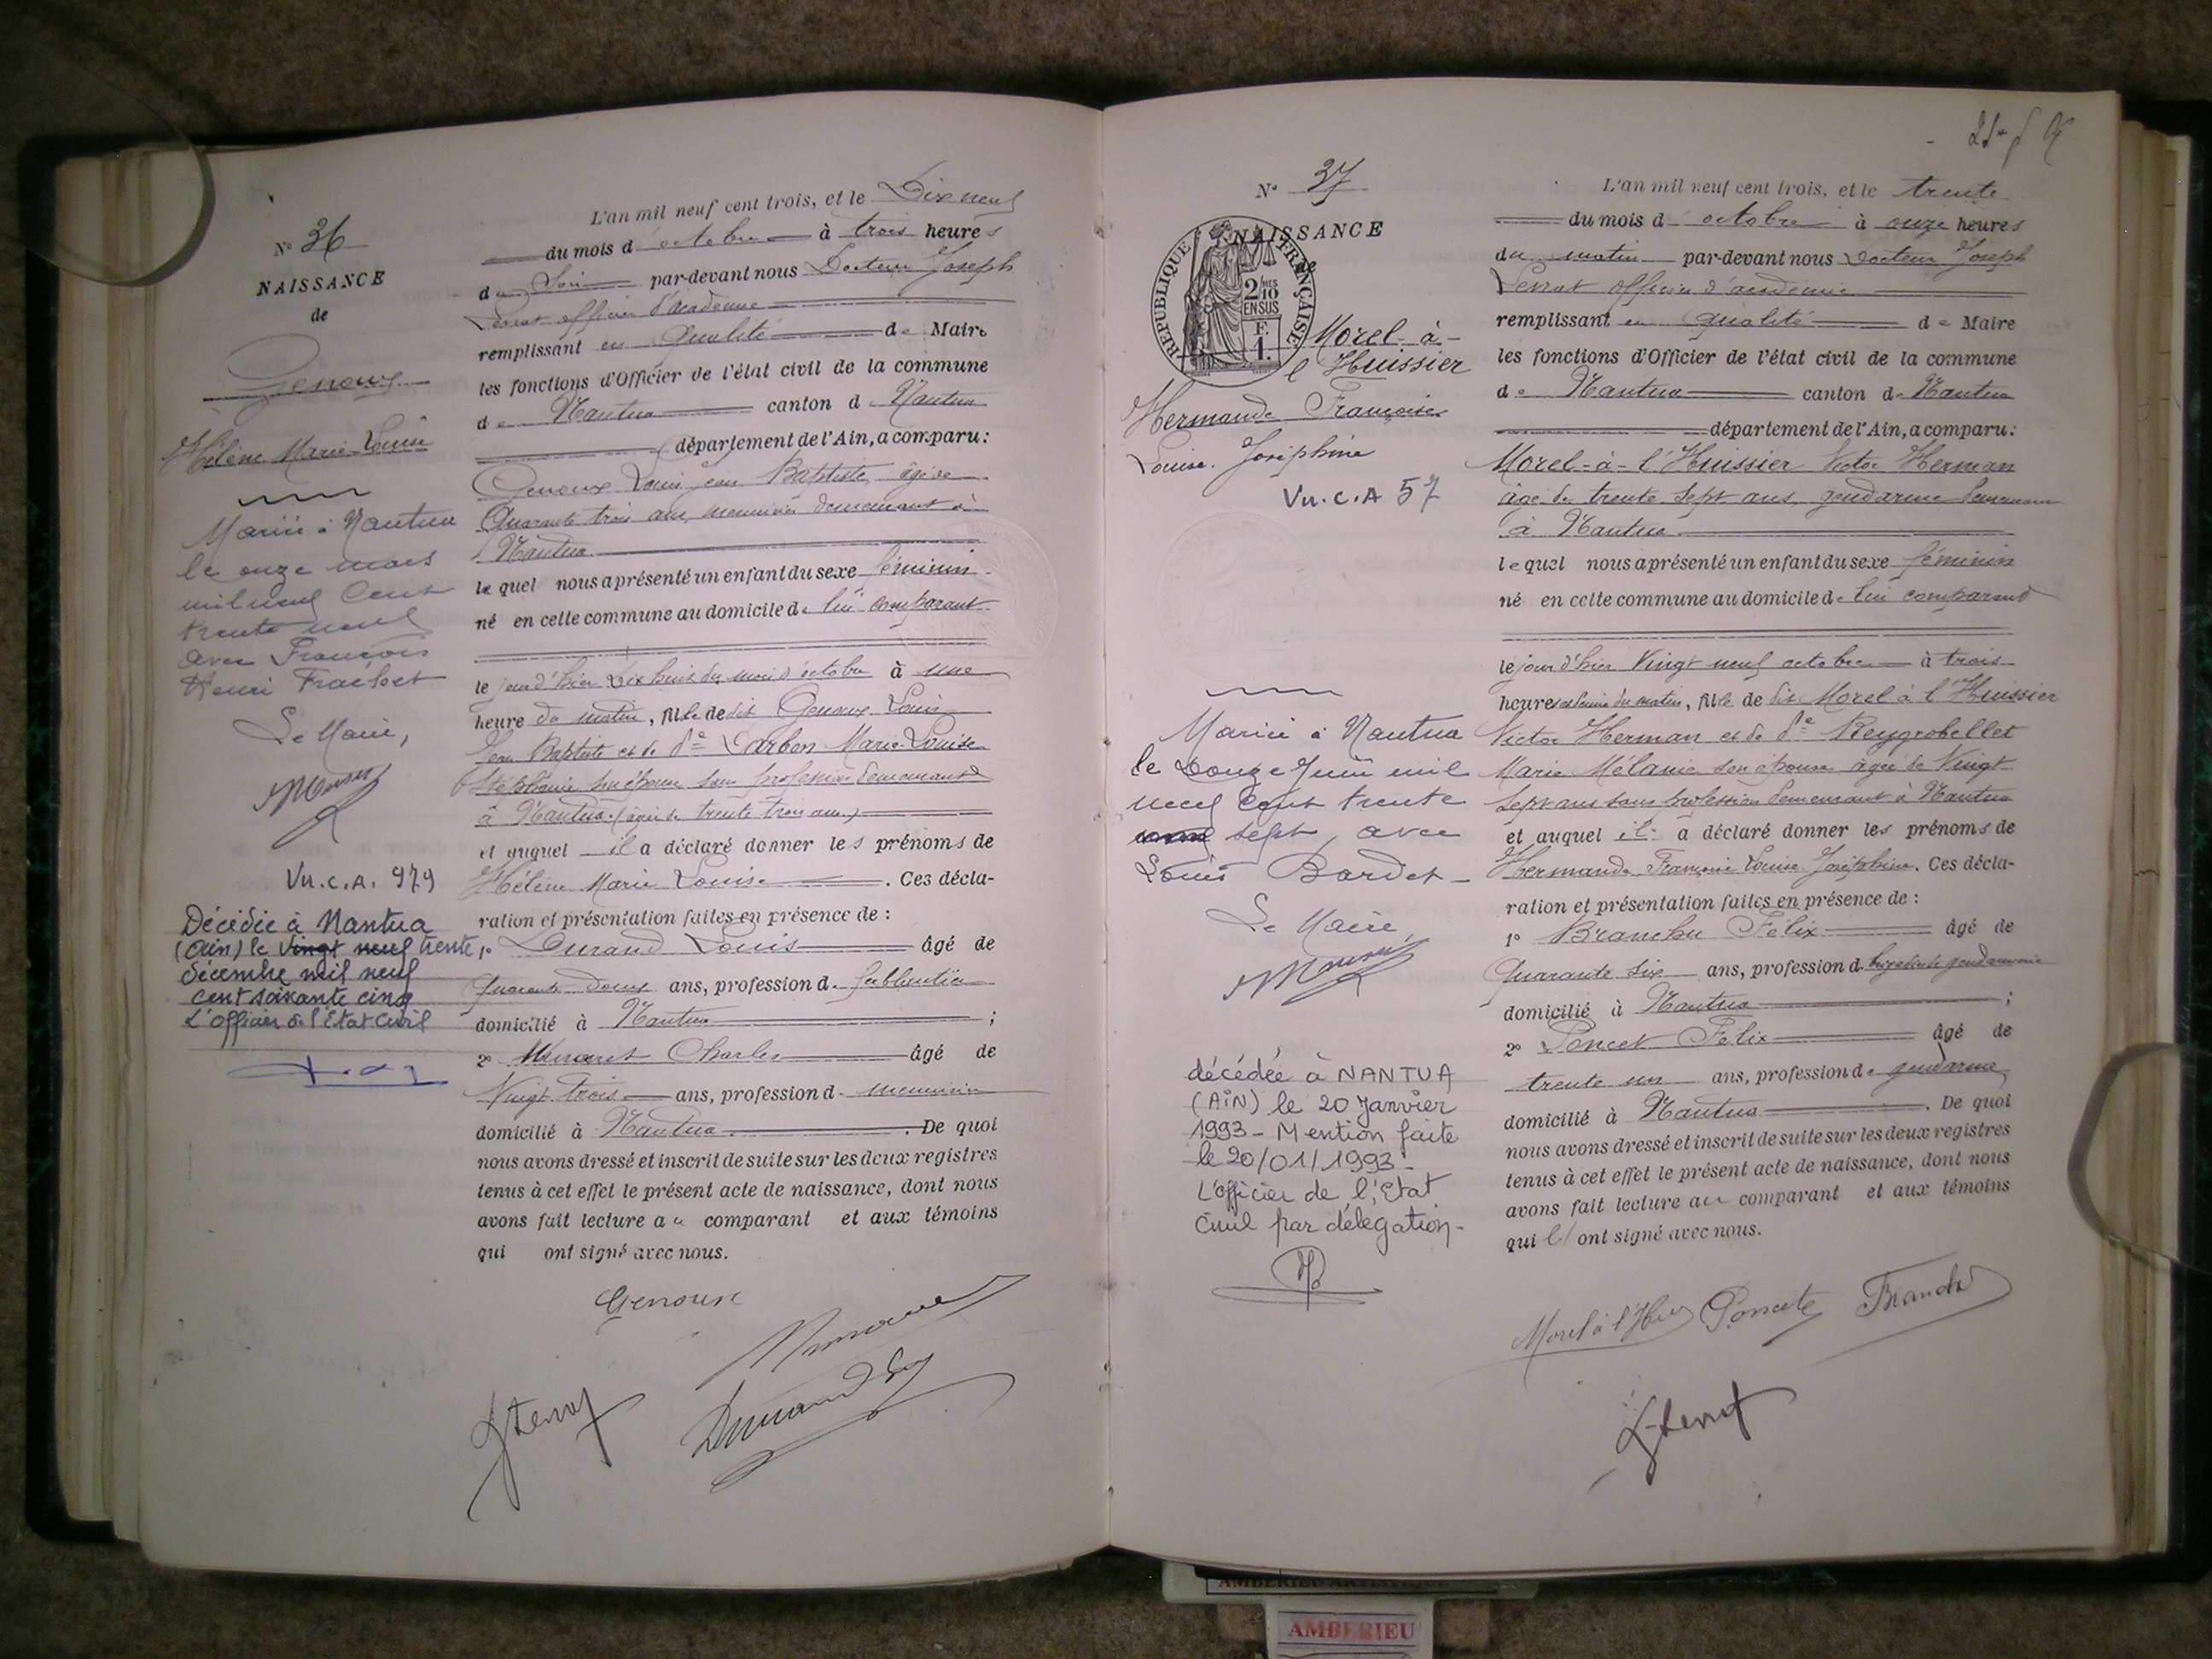 N° 36
NAISSANCE
de
Genoux
Hélène Marie Louise
Mariée à Nantua
le onze mars
mil neuf cent
trente neuf
avec François
Henri Frachet
Le Maire,
Vu. C.A. 979
Décédée à Nantua
(Ain) le vingt neuf trente
décembre mil neuf
cent soixante cinq
L'officier de l'Etat Civil
L'an mil neuf cent trois, et le Dix neuf
du mois d'octobre à trois heures
du Soir par-devant nous Docteur Joseph
officier d'académie
remplissant en qualité de Maire
les fonctions d'Officier de l'état civil de la commune
de Nantua canton de Nantua
département de l'Ain, a comparu:
Genoux Louis Jean Baptiste âgé de
Quarante trois ans, menuisier demeurant à
Nantua
le quel nous a présenté un enfant du sexe féminin
né en cette commune au domicile de lui comparant
le jour d'hier dix huit du mois d'octobre à une
heure du matin, fille de dit Genoux Louis
Jean Baptiste et de de Carbon Marie Louise
Stéphanie son épouse sans profession demeurant
à Nantua (âgée de trente trois ans)
et auquel il a déclaré donner les prénoms de
Hélène Marie Louise. Ces décla-
ration et présentation faites en présence de :
1° Durand Louis âgé de
quarante deux ans, profession de ferblantier
domicilié à Nantua ;
2° Munaret Charles âgé de
Vingt trois ans, profession d menuisier
domicilié à Nantua. De quoi
nous avons dressé et inscrit de suite sur les deux registres
tenus à cet effet le présent acte de naissance, dont nous
avons fait lecture au comparant et aux témoins
qui ont signé avec nous.
Genoux
N° 37
NAISSANCE
de
RÉPUBLIQUE FRANÇAISE
2/10 MES
EN SUS
F.
1.
Morel-à-
l'Huissier
Hermande Françoise
Louise Joséphine
Vu. C.A 57
Mariée à Nantua
le douze Juin mil
neuf cent trente
sept, avec
Louis Bardet
Le Maire,
décédée à NANTUA
(AIN) le 20 Janvier
1993 - Mention faite
le 20/01/1993 -
L'officier de l'Etat
Civil par délégation -
L'an mil neuf cent trois, et le trente
du mois d'octobre à onze heures
du matin par-devant nous Docteur Joseph
officier d'académie
remplissant en qualité de Maire
les fonctions d'Officier de l'état civil de la commune
de Nantua canton de Nantua
département de l'Ain, a comparu:
Morel-à-l'Huissier Victor Herman
âgé de trente sept ans, gendarme demeurant
à Nantua
lequel nous a présenté un enfant du sexe féminin
né en cette commune au domicile de lui comparant
le jour d'hier Vingt neuf octobre à trois
heures et demie du matin, fille de dit Morel à l'Huissier
Victor Herman et de de Reygrobellet
Marie Mélanie son épouse âgée de Vingt
sept ans sans profession demeurant à Nantua
et auquel il a déclaré donner les prénoms de
Hermande Françoise Louise Joséphine. Ces décla-
ration et présentation faites en présence de :
1° Branchu Félix âgé de
Quarante six ans, profession d brigadier de gendarmerie
domicilié à Nantua ;
2° Poncet Félix âgé de
trente un ans, profession de gendarme
domicilié à Nantua. De quoi
nous avons dressé et inscrit de suite sur les deux registres
tenus à cet effet le présent acte de naissance, dont nous
avons fait lecture au comparant et aux témoins
qui ont signé avec nous.
Morel à l'Huis Poncet Branchu
AMBERIEU ARTISTIQUE
AMBERIEU